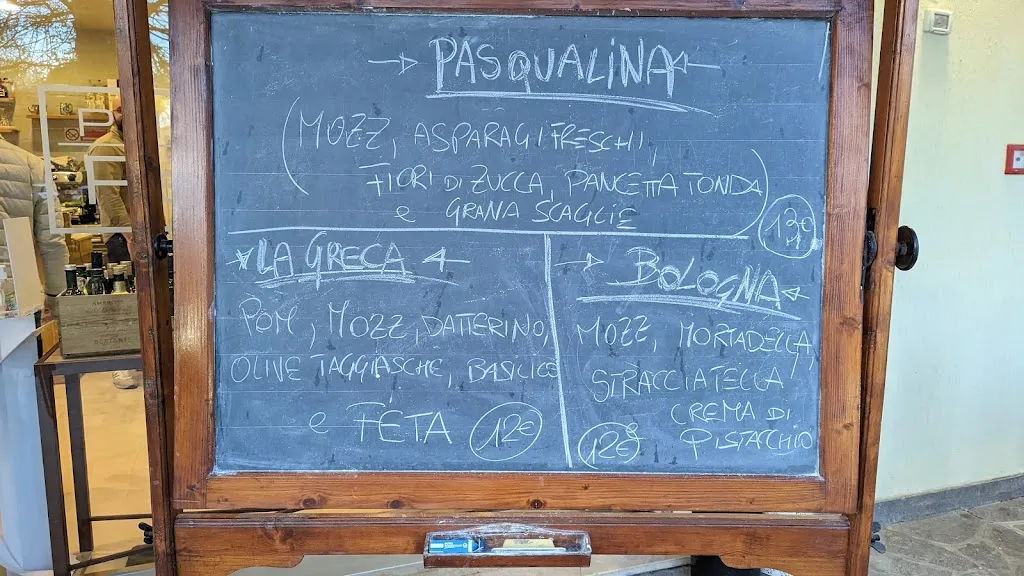 PASQUALINA
(MOZZ, ASPARAGI FRESCHI,
FIORI DI ZUCCA, PANCETTA TONDA
e GRANA SCAGLIE)
13€
LA GRECA
POM, MOZZ, DATTERINO,
OLIVE TAGGIASCHE, BASILICO
e FETA 12€
BOLOGNA
MOZZ, MORTADELLA,
STRACCIATELLA
CREMA DI
PISTACCHIO
12€